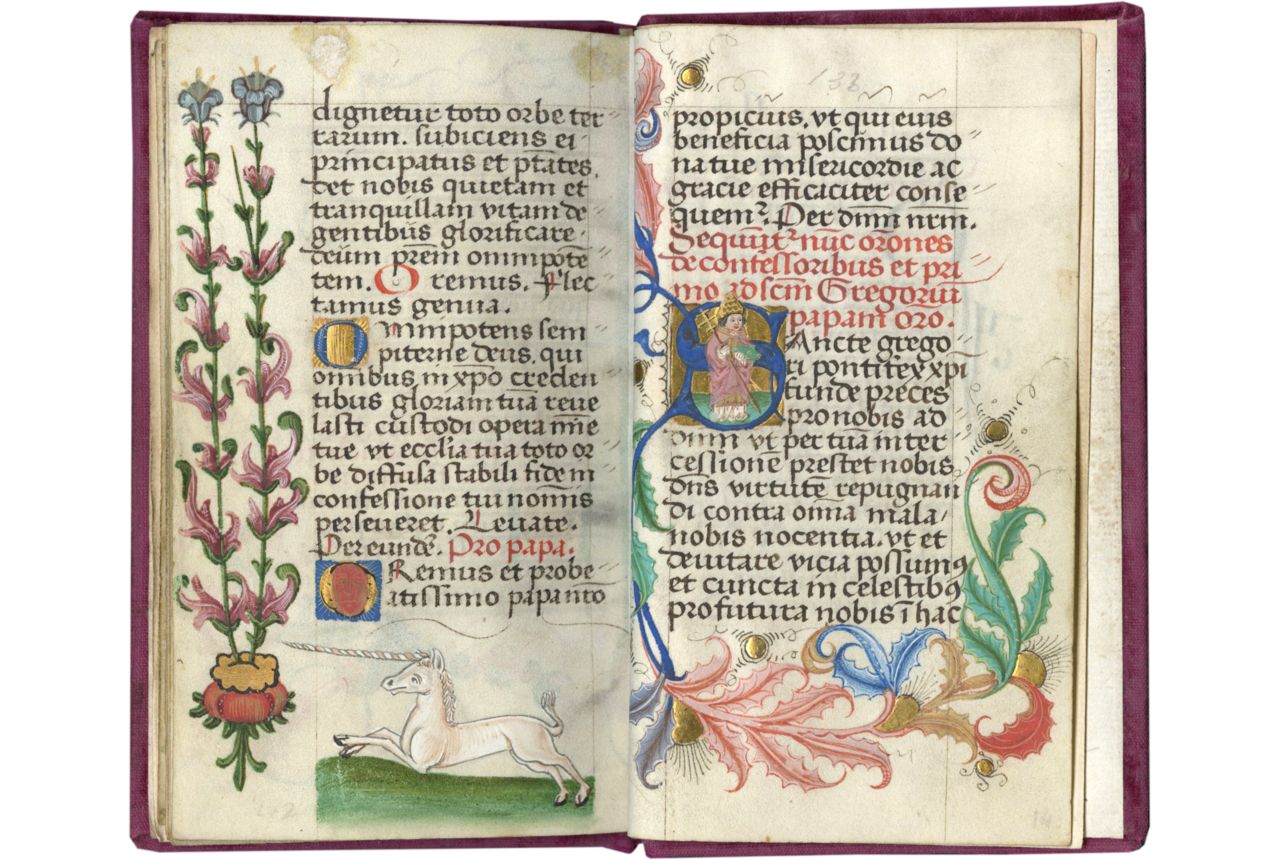 dignetur toto orbe ter
rarum. subiciens ei
principatus et ptates.
det nobis quietam et
tranquillam vitam de
gentibus glorificare
deum prem omnipotē
tem. Oremus. Flec
tamus genua.
Omnipotens sem
piterne deus, qui
omnibus in xpo creden
tibus gloriam tuā reve
lasti custodi opera mīe
tue vt ecclia tua toto or
be diffusa stabili fide in
confessione tui nomīs
perseveret. Levate.
Per eundē. Pro papa.
ORemus et probe
atissimo papa nrō
133
propicius, vt qui eius
beneficia poscimus do
na tue misericordie ac
gracie efficaciter conse
quemr. Per dnm nrm.
Sequūtr nūc orōnes
de confessoribus et pri
mo ad scm Gregoriū
papam oro.
SAncte grego
ri pontifex xpi
funde preces
pro nobis ad
dnm vt per tuā inter
cessionē prestet nobis
dns virtutē repugnan
di contra omīa mala
nobis nocentia. vt et
devitare vicia possimꝰ
et cuncta in celestibꝰ
profutura nobis ī hac